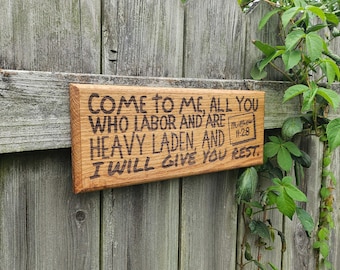 COME TO ME, ALL YOU
WHO LABOR AND ARE
HEAVY LADEN, AND
I WILL GIVE YOU REST.
MATTHEW
11:28